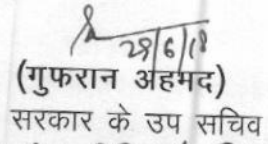 28/6/18
(गुफरान अहमद)
सरकार के उप सचिव